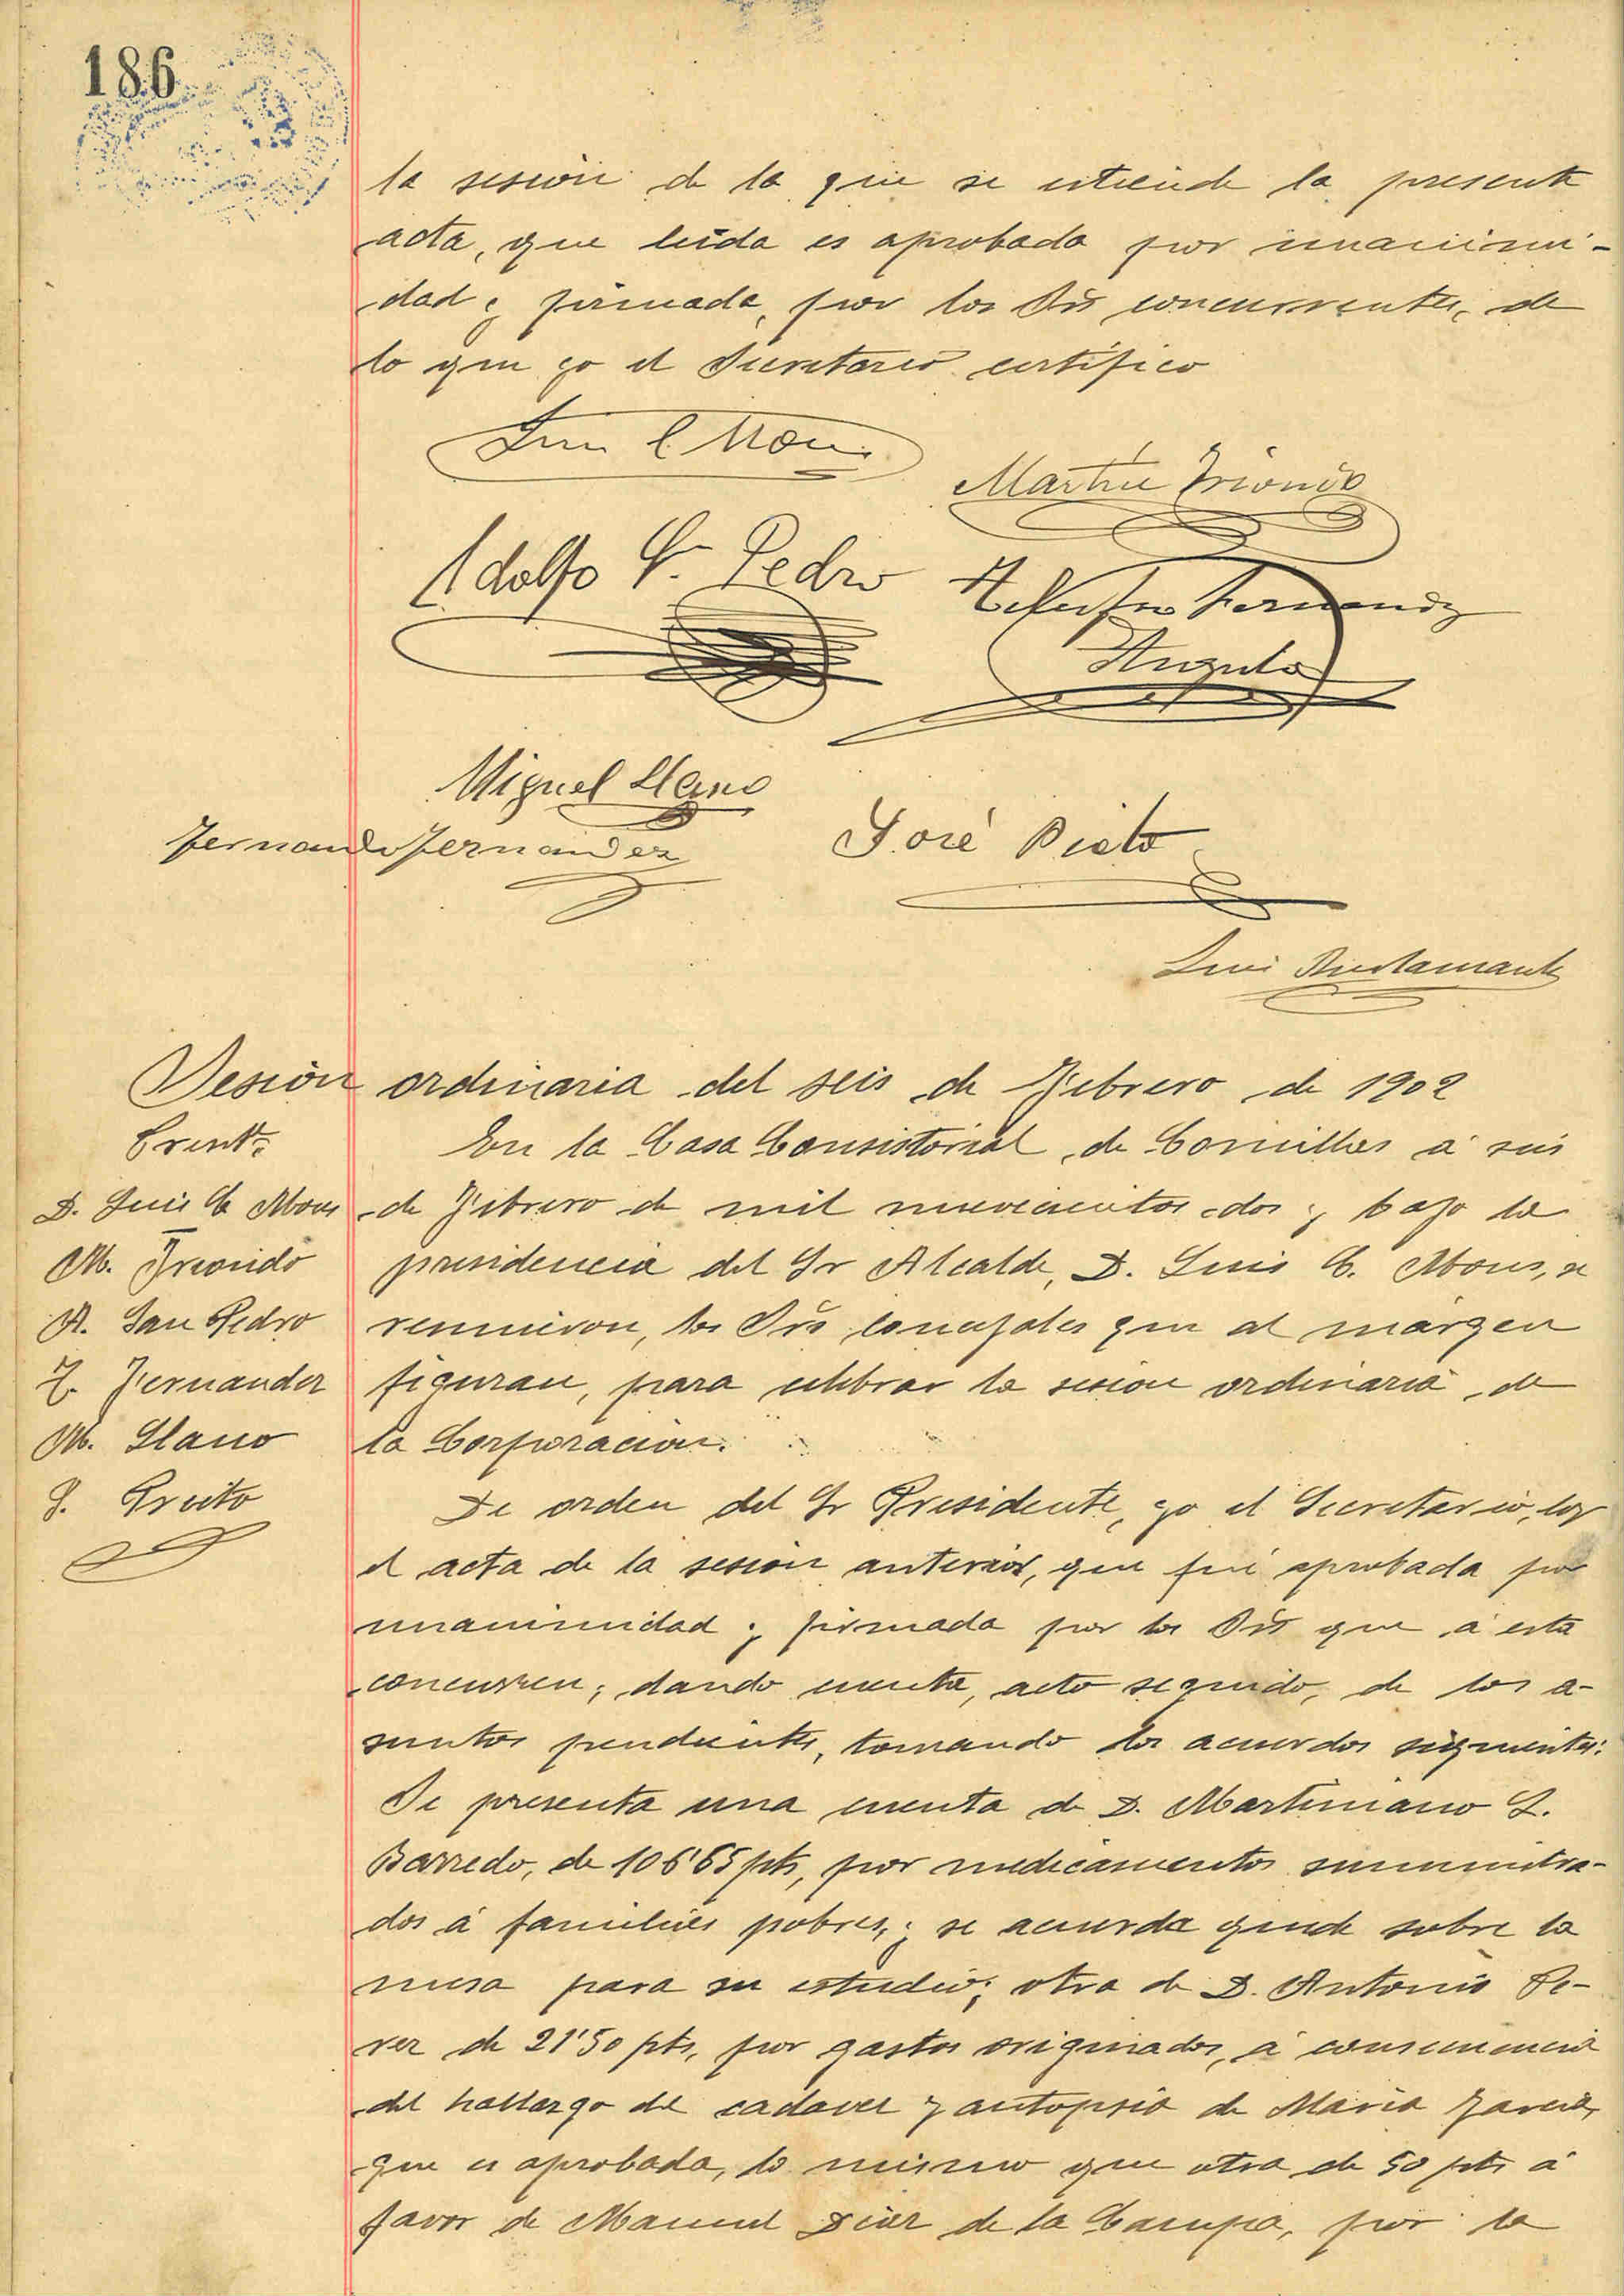 186
la sesión de la que se estiende la presente
acta, que leida es aprobada por unanimi-
dad y firmada, por los Srs concurrentes, de
lo que yo el Secretario certifico
Luis C Mons
Martin Triondo
Adolfo Sn Pedro
Fernandez
Angulo
Miguel Llano
Fernando Fernandez
José Prieto
Luis Bustamante
Sesión ordinaria del seis de Febrero de 1902
D. Luis C Mons
M. Triondo
A. San Pedro
F. Fernandez
M. Llano
J. Prieto
En la Casa Consistorial de Comillas á seis
de Febrero de mil novecientos dos y bajo la
presidencia del Sr Alcalde, D. Luis C. Mons, se
reunieron, los Srs concejales que al márgen
figuran, para celebrar la sesion ordinaria de
la Corporacion.
De orden del Sr Presidente, yo el Secretario, ley
el acta de la sesión anterior, que fué aprobada por
unanimidad y firmada por los Srs que á esta
concurren; dando cuenta, acto seguido, de los a-
suntos pendientes, tomando los acuerdos siguientes:
Se presenta una cuenta de D. Martiniano S.
Barredo, de 106'65 pts, por medicamentos suministra-
dos á familias pobres, y se acuerda quede sobre la
mesa para su estudio; otra de D. Antonio Pe-
rez de 21'50 pts, por gastos originados, á consecuencia
del hallazgo del cadaver y autopsia de Maria Garcia,
que es aprobada, lo mismo que otra de 50 pts á
favor de Manuel Diaz de la Campa, por la